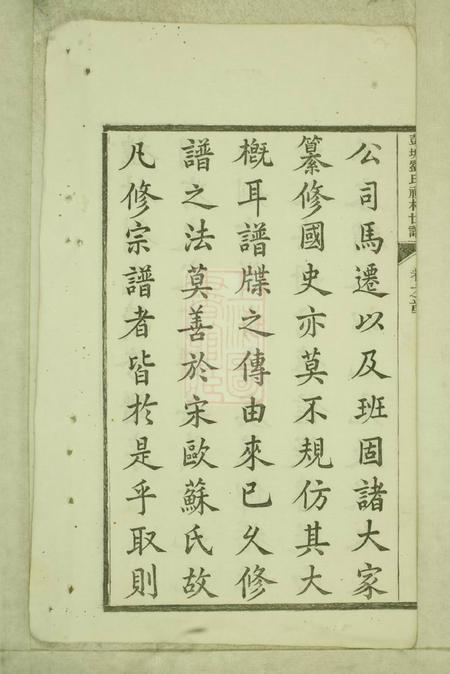 公司馬遷以及班固諸大家
纂修國史亦莫不規仿其大
概耳譜牒之傳由來已久修
譜之法莫善於宋歐蘇氏故
凡修宗譜者皆於是乎取則